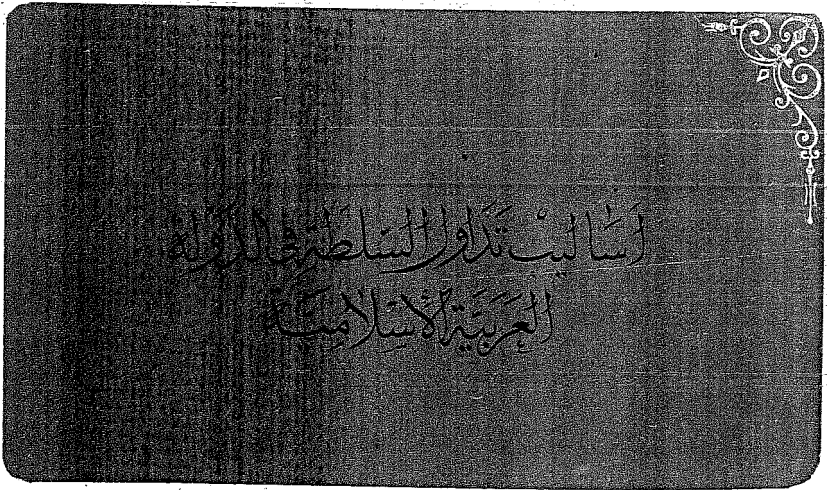 أَسَاليبْ تَدَاول السّلطَة في الدَّولة
العَرَبيَّة الإسْلاميَّة